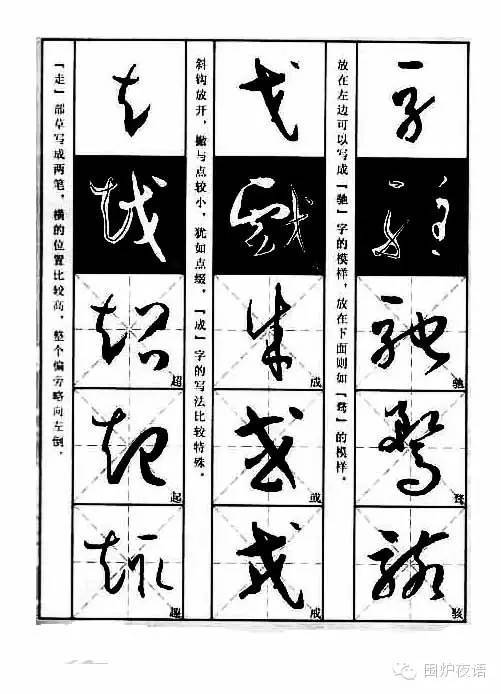 马
驻
驰
骛
骇
放在左边可以写成「驰」字的模样，放在下面则如「骛」的模样。
戈
戏
成
或
斜钩放开，撇与点较小，犹如点缀。「成」字的写法比较特殊。
走
越
超
起
趣
「走」部草写成两笔，横的位置比较高，整个偏旁略向左倒。
围炉夜语